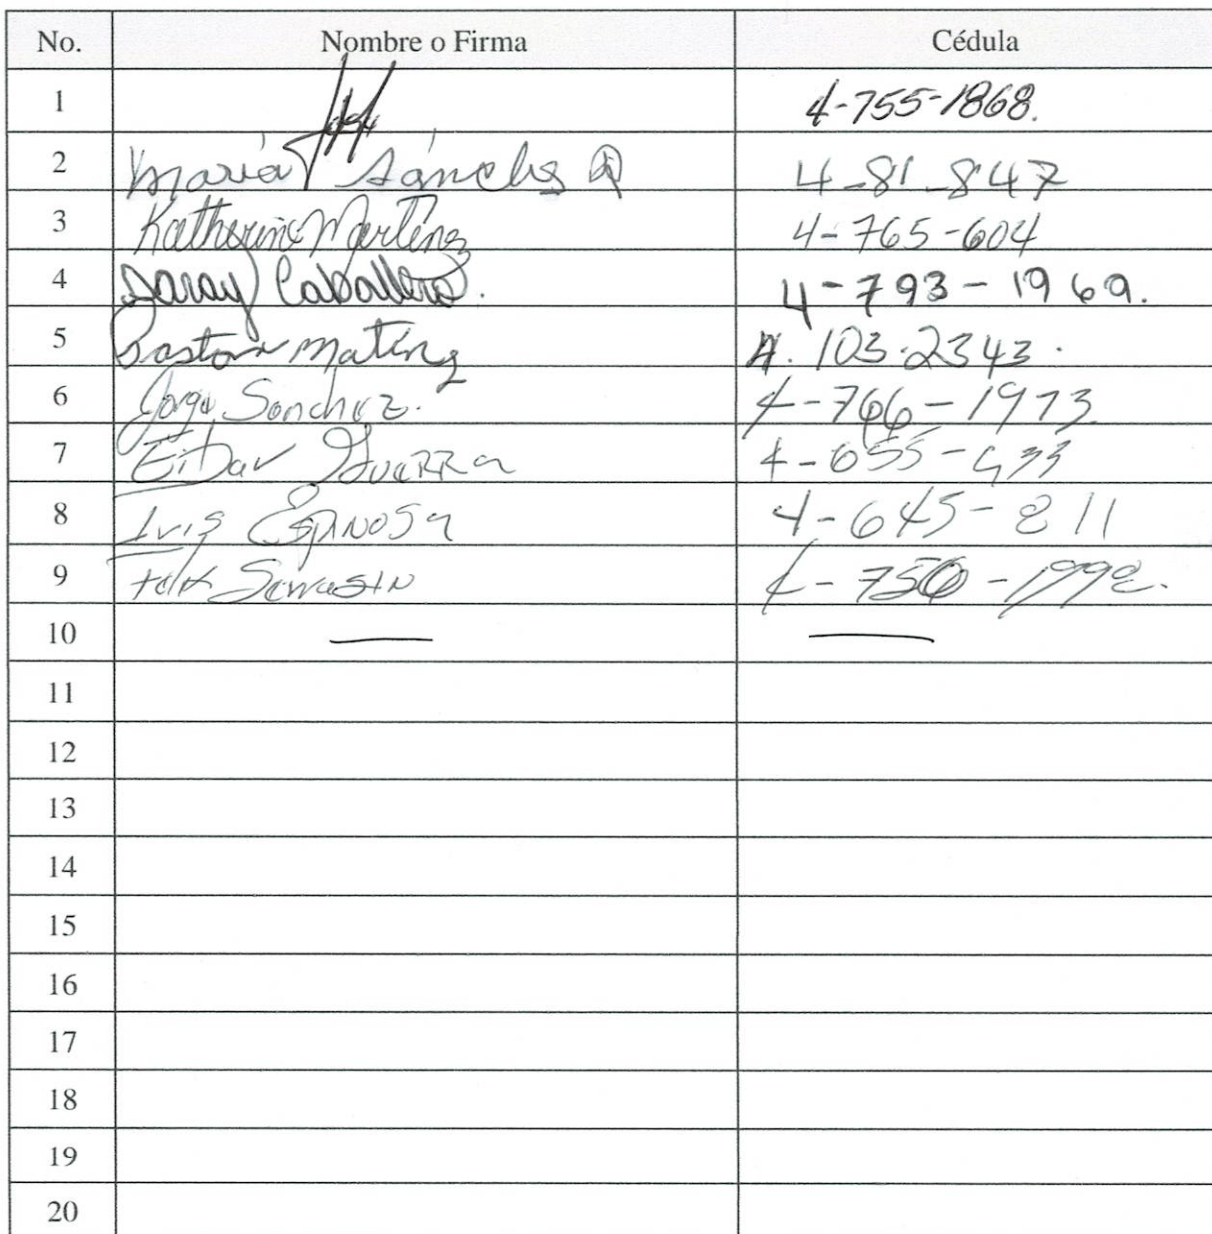 No. Nombre o Firma Cédula
1 4-755-1868.
2 María Sánchez 4-81-847
3 Katherine Martínez 4-765-604
4 Saray Caballero. 4-793-1969.
5 Pastora Matinz 4.103.2343.
6 Jorge Sanchez. 4-766-1973
7 Eibar Guerra 4-655-433
8 Ivis Espinosa 4-645-811
9 4-750-1992.
10 — —
11
12
13
14
15
16
17
18
19
20